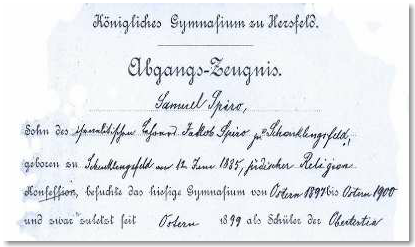 Königliches Gymnasium zu Hersfeld.
Abgangs-Zeugnis.
Samuel Spiro,
Sohn des israelitischen Jakob Spiro zu Schenklengsfeld,
geboren zu Schenklengsfeld am 12 Juni 1885, jüdischer Religion
Konfession, besuchte das hiesige Gymnasium von Ostern 1897 bis Ostern 1900
und zwar zuletzt seit Ostern 1899 als Schüler der Obertertia